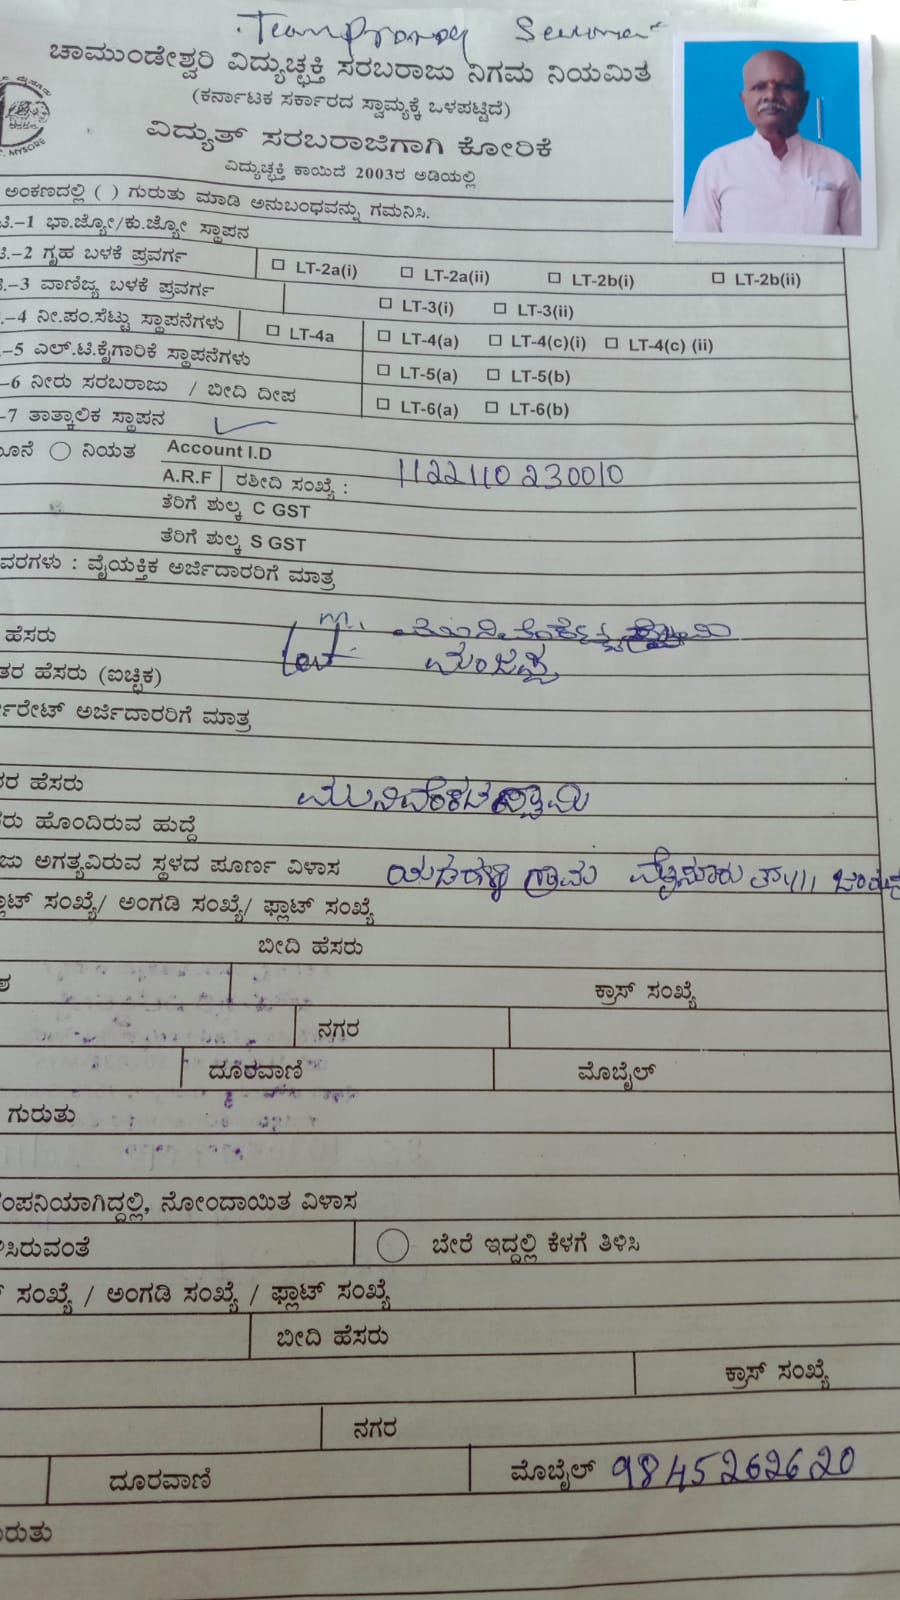 Temproroy
ಚಾಮುಂಡೇಶ್ವರಿ ವಿದ್ಯುಚ್ಛಕ್ತಿ ಸರಬರಾಜು ನಿಗಮ ನಿಯಮಿತ
(ಕರ್ನಾಟಕ ಸರ್ಕಾರದ ಸ್ವಾಮ್ಯಕ್ಕೆ ಒಳಪಟ್ಟಿದೆ)
MYSORE
ವಿದ್ಯುತ್ ಸರಬರಾಜಿಗಾಗಿ ಕೋರಿಕೆ
ವಿದ್ಯುಚ್ಛಕ್ತಿ ಕಾಯಿದೆ 2003ರ ಅಡಿಯಲ್ಲಿ
ಅಂಕಣದಲ್ಲಿ ( ) ಗುರುತು ಮಾಡಿ ಅನುಬಂಧವನ್ನು ಗಮನಿಸಿ.
ಟಿ.-1 ಭಾ.ಜ್ಯೋ/ಕು.ಜ್ಯೋ ಸ್ಥಾಪನ
ಟಿ.-2 ಗೃಹ ಬಳಕೆ ಪ್ರವರ್ಗ LT-2a(i) LT-2a(ii) LT-2b(i) LT-2b(ii)
-3 ವಾಣಿಜ್ಯ ಬಳಕೆ ಪ್ರವರ್ಗ LT-3(i) LT-3(ii)
-4 ನೀ.ಪಂ.ಸೆಟ್ಟು ಸ್ಥಾಪನೆಗಳು LT-4a LT-4(a) LT-4(c)(i) LT-4(c) (ii)
-5 ಎಲ್.ಟಿ.ಕೈಗಾರಿಕೆ ಸ್ಥಾಪನೆಗಳು LT-5(a) LT-5(b)
-6 ನೀರು ಸರಬರಾಜು / ಬೀದಿ ದೀಪ LT-6(a) LT-6(b)
-7 ತಾತ್ಕಾಲಿಕ ಸ್ಥಾಪನ
ನಿಯತ Account I.D
A.R.F ರಶೀದಿ ಸಂಖ್ಯೆ : 1122110230010
ತೆರಿಗೆ ಶುಲ್ಕ C GST
ತೆರಿಗೆ ಶುಲ್ಕ S GST
ವರಗಳು : ವೈಯಕ್ತಿಕ ಅರ್ಜಿದಾರರಿಗೆ ಮಾತ್ರ
ಹೆಸರು
ತರ ಹೆಸರು (ಐಚ್ಛಿಕ)
ರೇಟ್ ಅರ್ಜಿದಾರರಿಗೆ ಮಾತ್ರ
ರ ಹೆಸರು ಮುನಿವೆಂಕಟಸ್ವಾಮಿ
ರು ಹೊಂದಿರುವ ಹುದ್ದೆ
ಜು ಅಗತ್ಯವಿರುವ ಸ್ಥಳದ ಪೂರ್ಣ ವಿಳಾಸ ಯಡಹಳ್ಳಿ ಗ್ರಾಮ ಮೈಸೂರು ತಾ||
ಲಾಟ್ ಸಂಖ್ಯೆ/ ಅಂಗಡಿ ಸಂಖ್ಯೆ/ ಫ್ಲಾಟ್ ಸಂಖ್ಯೆ
ಬೀದಿ ಹೆಸರು
ಕ್ರಾಸ್ ಸಂಖ್ಯೆ
ನಗರ
ದೂರವಾಣಿ ಮೊಬೈಲ್
ಗುರುತು
ಂಪನಿಯಾಗಿದ್ದಲ್ಲಿ, ನೋಂದಾಯಿತ ವಿಳಾಸ
ಸಿರುವಂತೆ ಬೇರೆ ಇದ್ದಲ್ಲಿ ಕೆಳಗೆ ತಿಳಿಸಿ
ಸಂಖ್ಯೆ / ಅಂಗಡಿ ಸಂಖ್ಯೆ / ಫ್ಲಾಟ್ ಸಂಖ್ಯೆ
ಬೀದಿ ಹೆಸರು
ಕ್ರಾಸ್ ಸಂಖ್ಯೆ
ನಗರ
ದೂರವಾಣಿ ಮೊಬೈಲ್ 9845262620
ರುತು